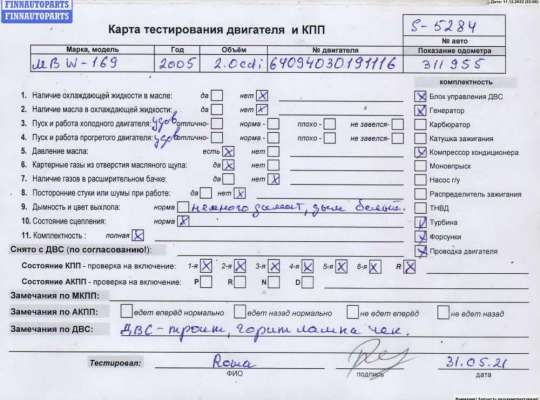 FINNAUTOPARTS
FINNAUTOPARTS
Дата: 11.12.2022
Карта тестирования двигателя и КПП
S-5284
№ авто
Марка, модель Год Объём № двигателя Показание одометра
MB W-169 2005 2.0cdi 64094030191116 311 955
комплектность
1. Наличие охлаждающей жидкости в масле: да нет X
2. Наличие масла в охлаждающей жидкости: да нет X
3. Пуск и работа холодного двигателя: удов отлично- норма - плохо - не завелся-
4. Пуск и работа прогретого двигателя: удов отлично- норма - плохо - не завелся-
5. Давление масла: есть X нет
6. Картерные газы из отверстия масляного щупа: да X нет
7. Наличие газов в расширительном бачке: да нет X
8. Посторонние стуки или шумы при работе: да нет X
9. Дымность и цвет выхлопа: норма немного дымит, дым белый.
10. Состояние сцепления: норма X
11. Комплектность : полная X
X Блок управления ДВС
X Генератор
Карбюратор
Катушка зажигания
X Компрессор кондиционера
Моновпрыск
Насос г/у
Распределитель зажигания
ТНВД
Турбина
Форсунки
X Проводка двигателя
Снято с ДВС (по согласованию!):
Состояние КПП - проверка на включение: 1-я X 2-я X 3-я X 4-я X 5-я X 6-я X R X
Состояние АКПП - проверка на включение: P R N D
Замечания по МКПП:
Замечания по АКПП: едет вперёд нормально едет назад нормально не едет вперёд не едет назад
Замечания по ДВС: ДВС-троит, горит лампа чек.
Тестировал: Roma 31.05.21
ФИО подпись дата